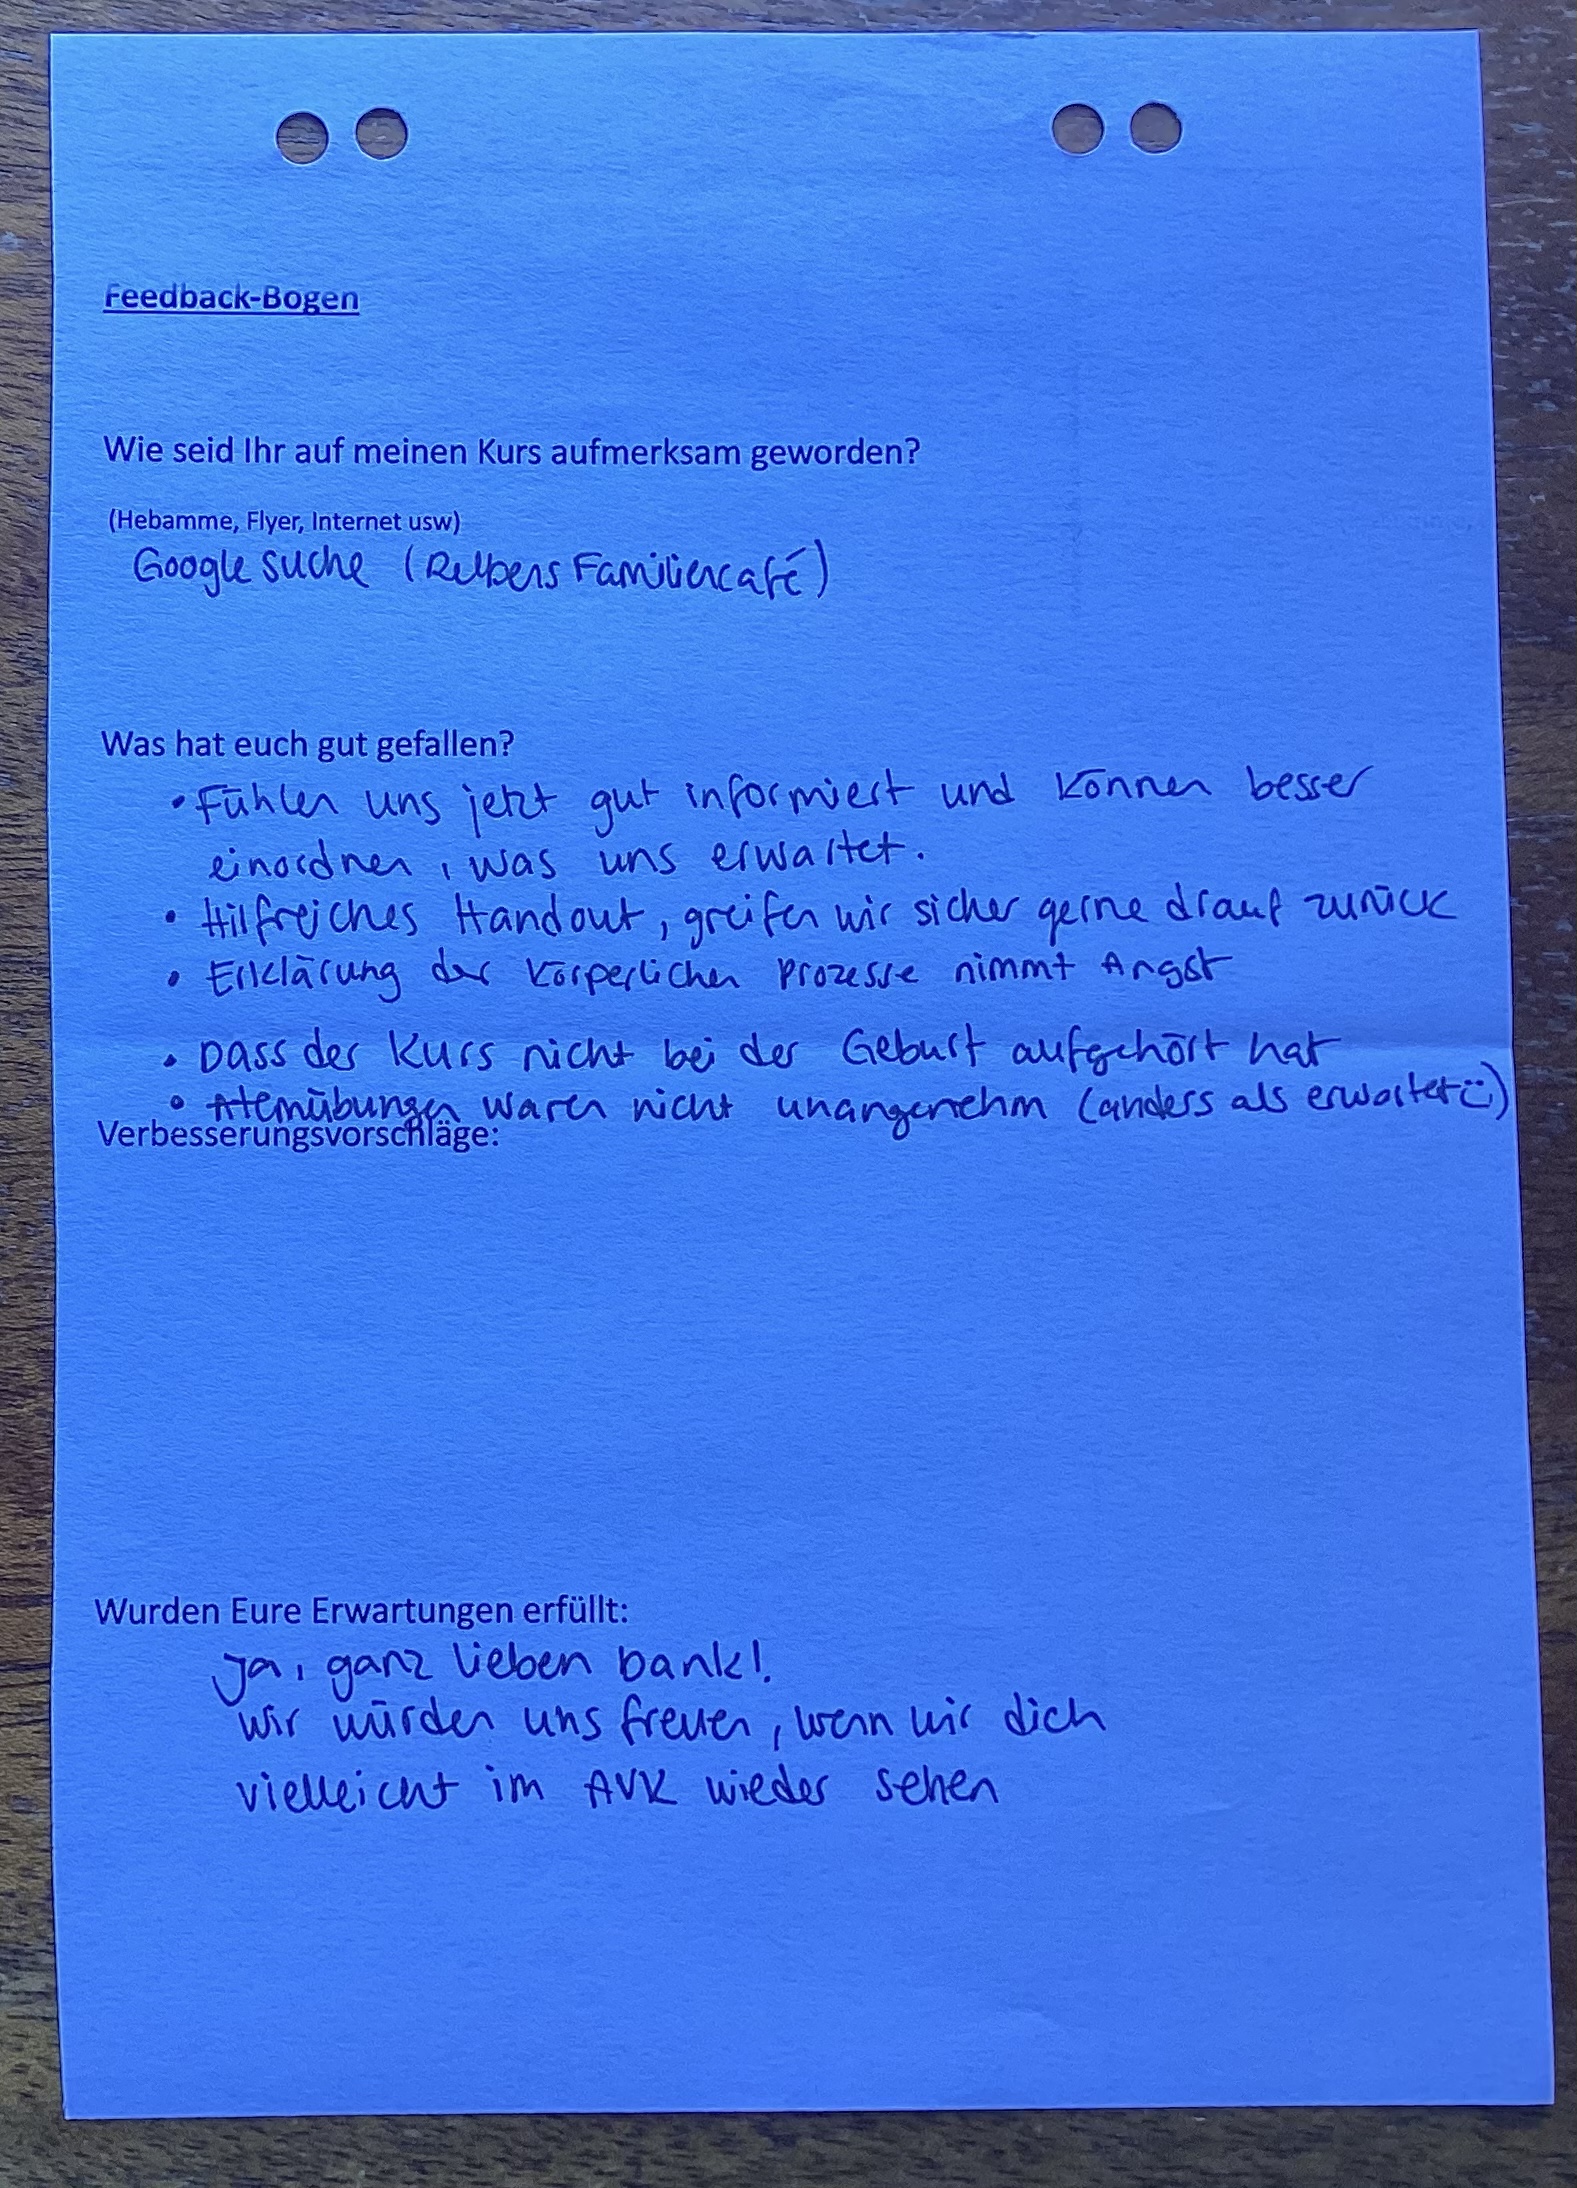 Feedback-Bogen
Wie seid Ihr auf meinen Kurs aufmerksam geworden?
(Hebamme, Flyer, Internet usw)
Google suche (Rubens Familiencafé)
Was hat euch gut gefallen?
• Fühlen uns jetzt gut informiert und können besser
einordnen, was uns erwartet.
• Hilfreiches Handout, greifen wir sicher gerne drauf zurück
• Erklärung der körperlichen Prozesse nimmt Angst
• Dass der Kurs nicht bei der Geburt aufgehört hat
• Atemübungen waren nicht unangenehm (anders als erwartet ü)
Verbesserungsvorschläge:
Wurden Eure Erwartungen erfüllt:
Ja, ganz lieben Dank!
Wir würden uns freuen, wenn wir dich
vielleicht im AVK wieder sehen